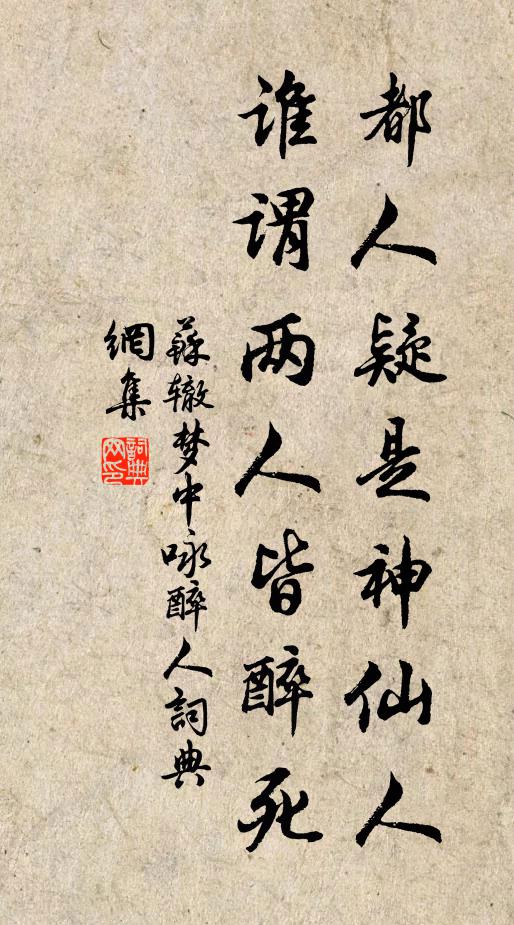 都人疑是神仙人
谁谓两人皆醉死
蘇辙梦中咏醉人詞典
網集
詞典
网印